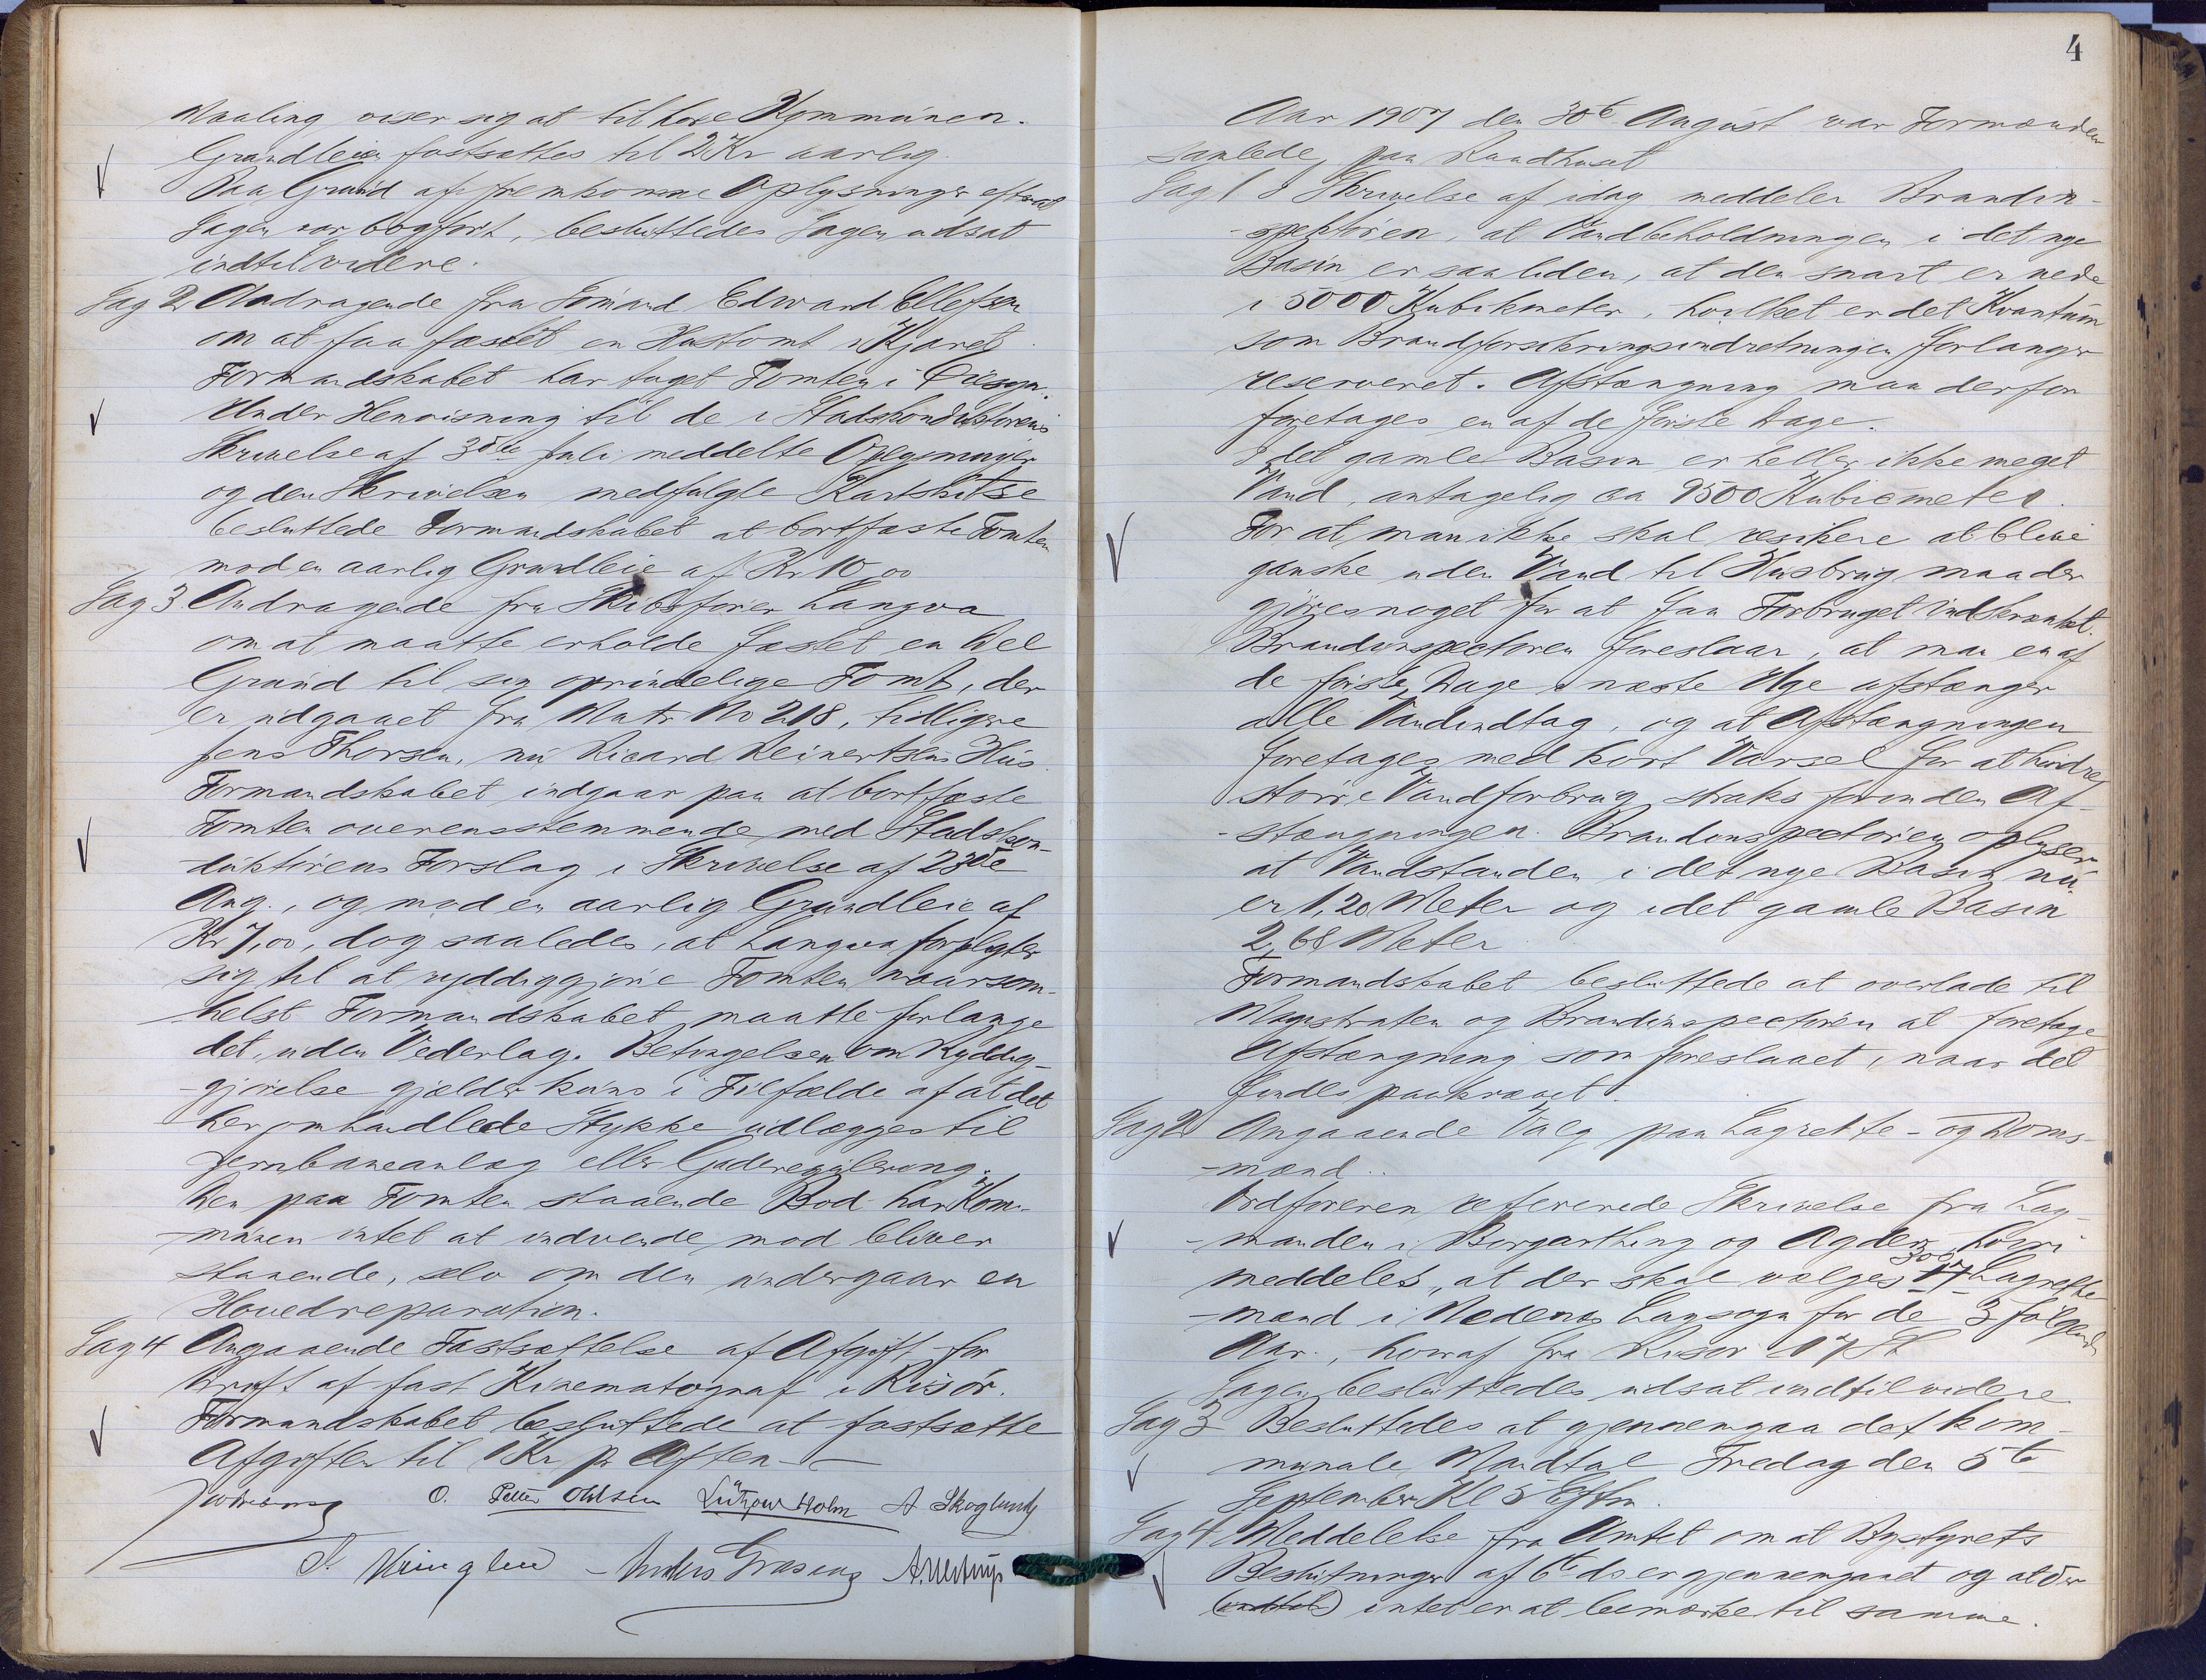 Maaling viser sig at tilhøre Kommunen.
Grundleien fastsattes til 2 Kr aarlig.
Paa Grund af fremkomne Oplysninger efterat
Sagen var bogført, besluttedes Sagen udsat
indtilvidere.
Sag 2 Andragende fra Sømand Edward Ellefsen
om at faa fæstet en Hustomt i Kjæret
Formandskabet har taget Tomten i Øiesyn.
Under Henvisning til de i Stadskonduktørens
Skrivelse af 3die Juli meddelte Oplysninger
og den Skrivelsen medfulgte Kartskitse
besluttede Formandskabet at bortfæste Tomten
mod en aarlig Grundleie af Kr 10,00
Sag 3 Andragende fra Skibsfører Langva
om at maatte erholde fæstet en Del
Grund til sin oprindelige Tomt, der
er udgaaet fra Matr No 218, tidligere
Jens Thorsen, nu Ricard Reinertsens Hus.
Formandskabet indgaar paa at bortfæste
Tomten overensstemmende med Stadskon-
duktørens Forslag i Skrivelse af 23de
Aug., og mod en aarlig Grundleie af
Kr 7,00, dog saaledes, at Langva forpligter
sig til at ryddiggjøre Tomten naarsom-
helst Formandskabet maatte forlange
det, uden Vederlag. Betingelsen om Ryddig-
-gjørelse gjælder kuns i Tilfælde af at det
her omhandlede Stykke udlægges til
Jernbaneanlæg eller Gaderegulering.
Den paa Tomten staaende Bod har Kom-
-munen intet at indvende mod bliver
staaende, selv om den undergaar en
Hovedreparation.
Sag 4 Angaaende Fastsættelse af Afgift for
Drift af fast Kinematograf i Risør.
Formandskabet besluttede at fastsætte
Afgiften til 1 Kr pr Aften
O. Petter Ohlsen Lützow Holm A Skoglund
4
Aar 1907 den 30te August var Formænden
samlede paa Raadhuset
Sag 1 I Skrivelse af idag meddeler Brandin-
-spektøren, at Vandbeholdningen i det nye
Basin er saa liden, at den snart er nede
i 5000 Kubikmeter, hvilket er det Kvantum
som Brandforsikringsindretningen forlanger
reserveret. Afstængning maa derfor
foretages en af de første Dage.
I det gamle Basin er heller ikke meget
Vand, antagelig ca 9500 Kubicmeter.
For at man ikke skal risikere at blive
ganske uden Vand til Husbrug maa der
gjøres noget for at faa Forbruget indskrænket.
Brandinspectøren foreslaar, at man en af
de første Dage i næste Uge afstænger
alle Vandindtag, og at Afstængningen
foretages med kort Varsel for at hindre
større Vandforbrug straks forinden Af-
-stængningen. Brandinspectøren oplyser
at Vandstanden i det nye Basin nu
er 1,20 Meter og i det gamle Basin
2,68 Meter
Formandskabet besluttede at overlade til
Magistraten og Brandinspectøren at foretage
Afstængning som foreslaaet, naar det
findes paakrævet.
Sag 2 Angaaende Valg paa Lagrette- og Doms-
-mænd.
Ordføreren refererede Skrivelse fra Lag-
-manden i Borgarthing og Agder, hvori
meddeles, at der skal vælges 300 17 Lagrette-
-mænd i Nedenes Lagsogn for de 3 følgende
Aar, hvoraf fra Risør 17 St
Sagen besluttedes udsat indtilvidere
Sag 3 Besluttedes at gjennemgaa det kom-
munale Mandtal Fredag den 5te
September Kl 5 Eftm.
Sag 4 Meddelelse fra Amtet om at Bystyrets
Beslutninger af 6te ds er gjennemgaaet og at der
intet er at bemærke til samme.